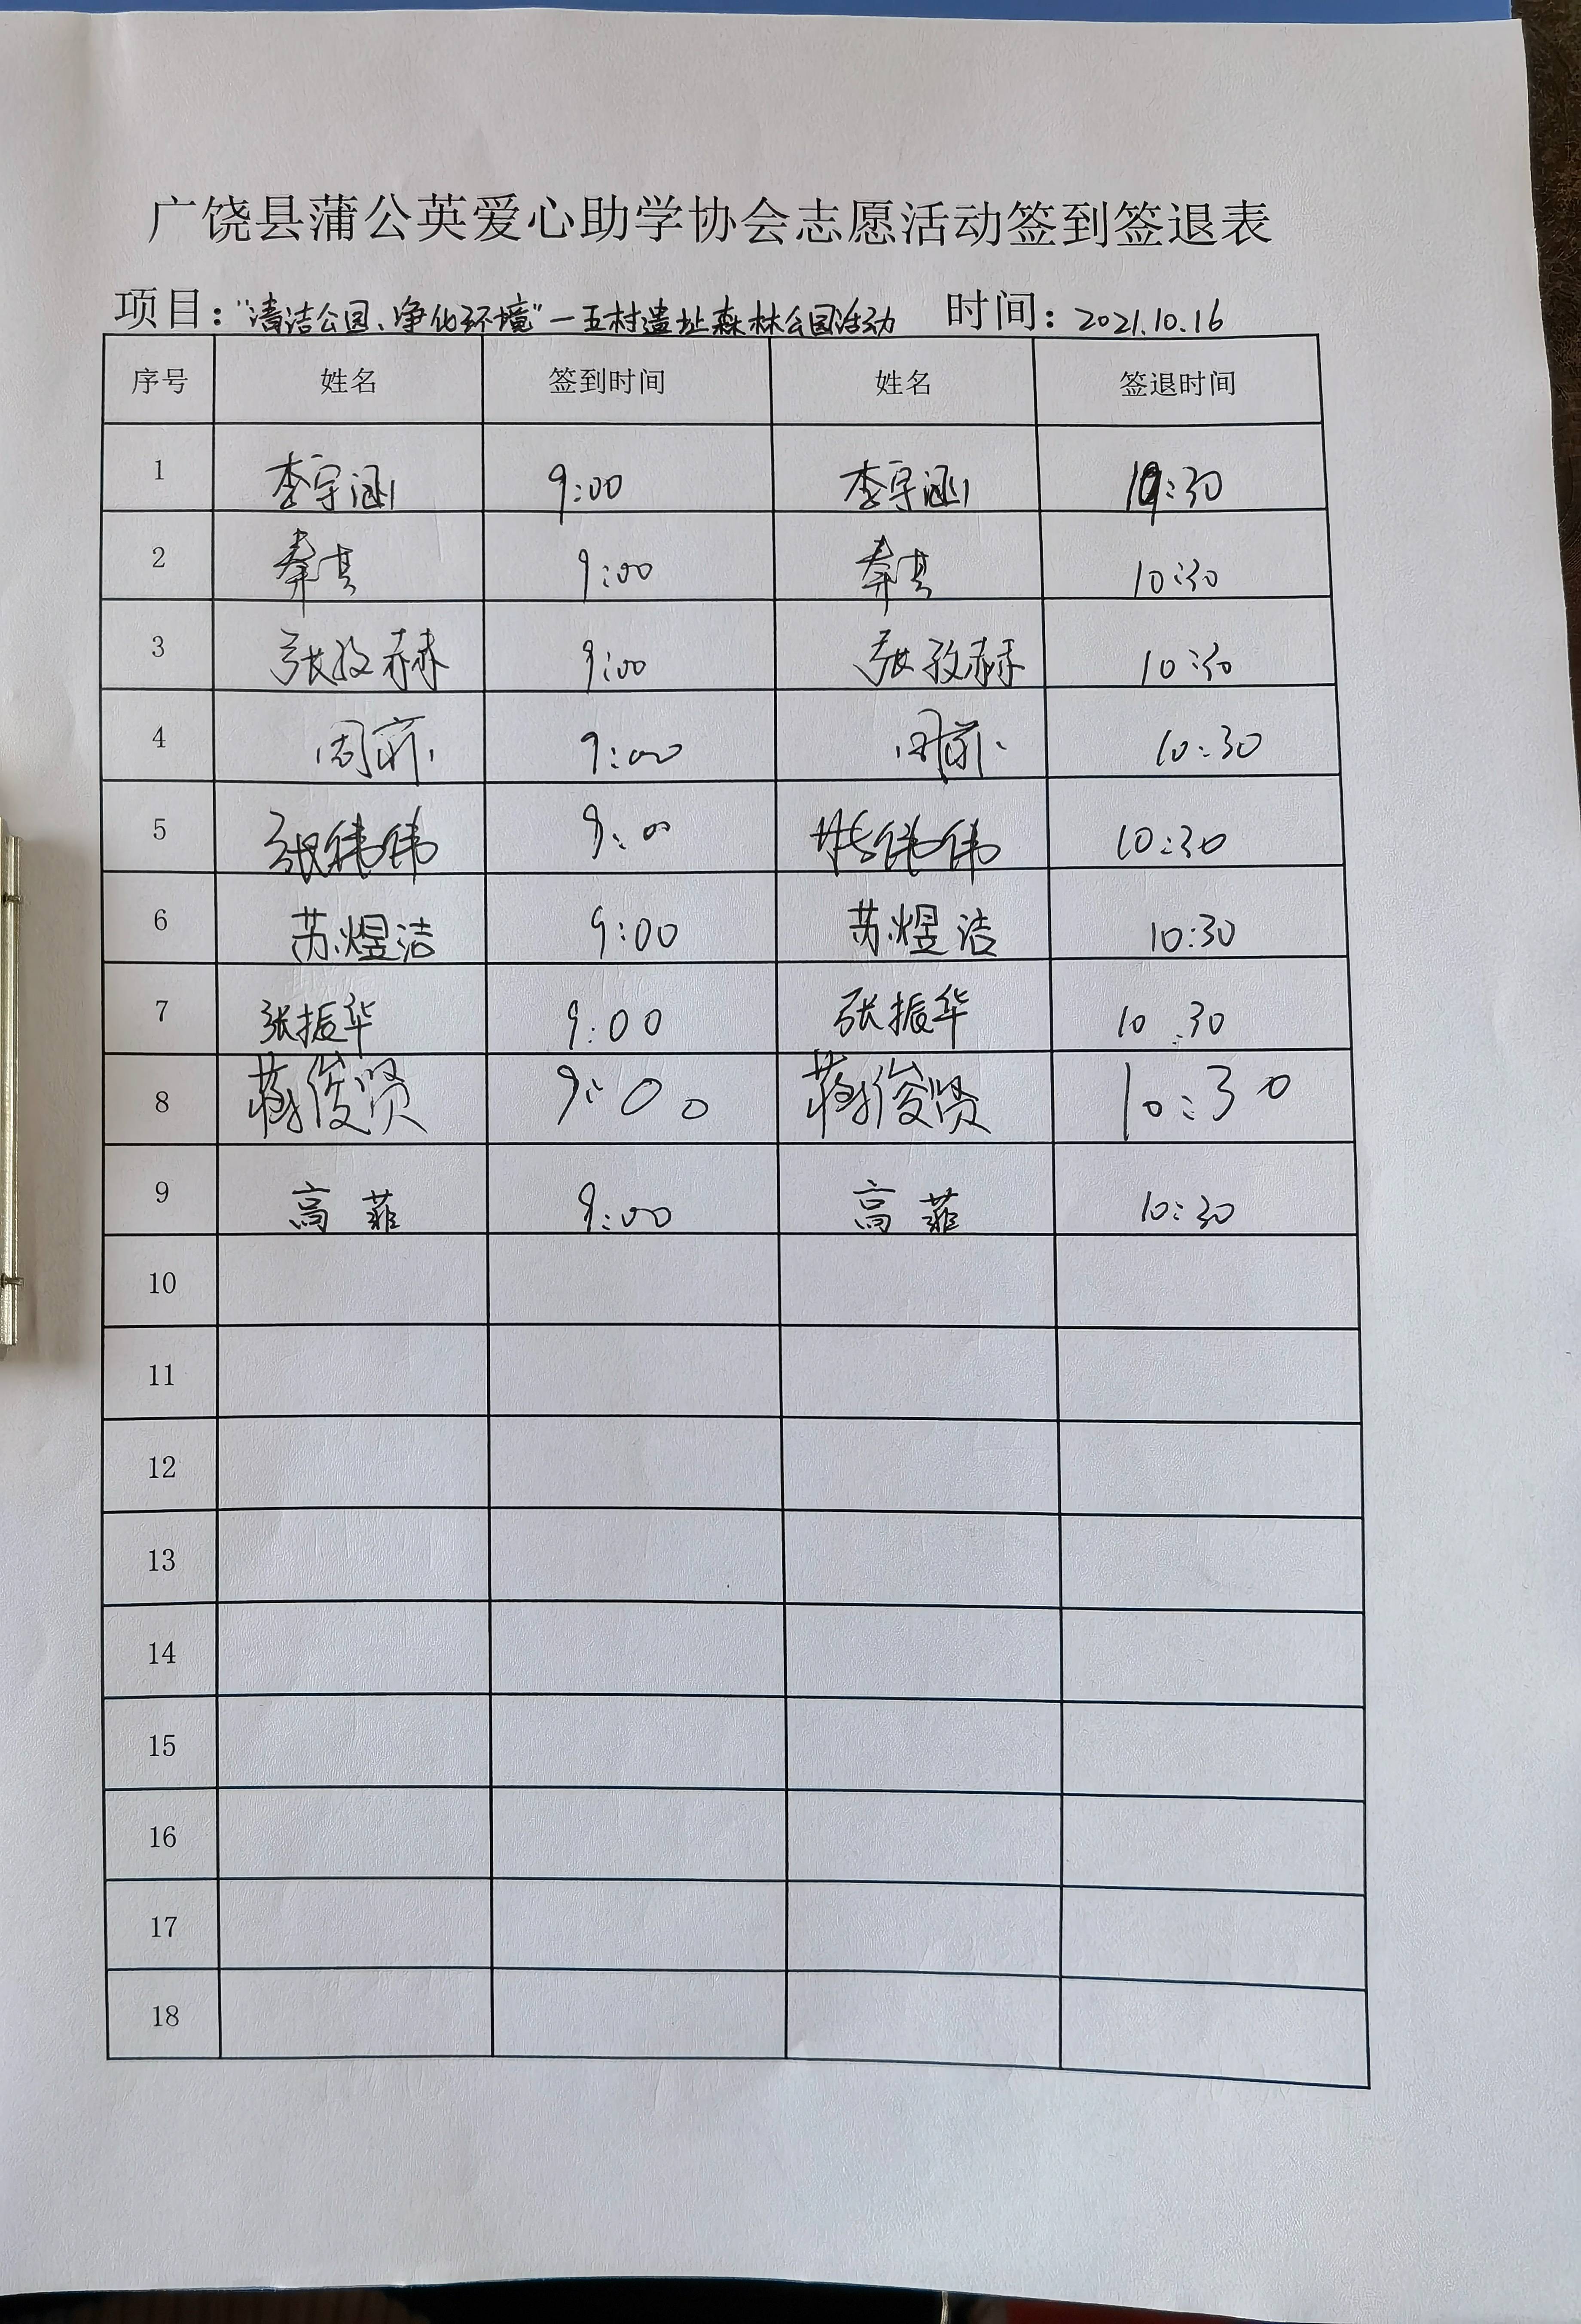 广饶县蒲公英爱心助学协会志愿活动签到签退表
项目：“清洁公园、净化环境”—五村遗址森林公园活动 时间：2021.10.16
序号 姓名 签到时间 姓名 签退时间
1 李宇涵 9:00 李宇涵 10:30
2 9:00 10:30
3 9:00 10:30
4 9:00 10:30
5 张伟伟 9:00 张伟伟 10:30
6 苏煜洁 9:00 苏煜洁 10:30
7 张振华 9:00 张振华 10:30
8 蒋俊贤 9:00 蒋俊贤 10:30
9 高菲 9:00 高菲 10:30
10
11
12
13
14
15
16
17
18